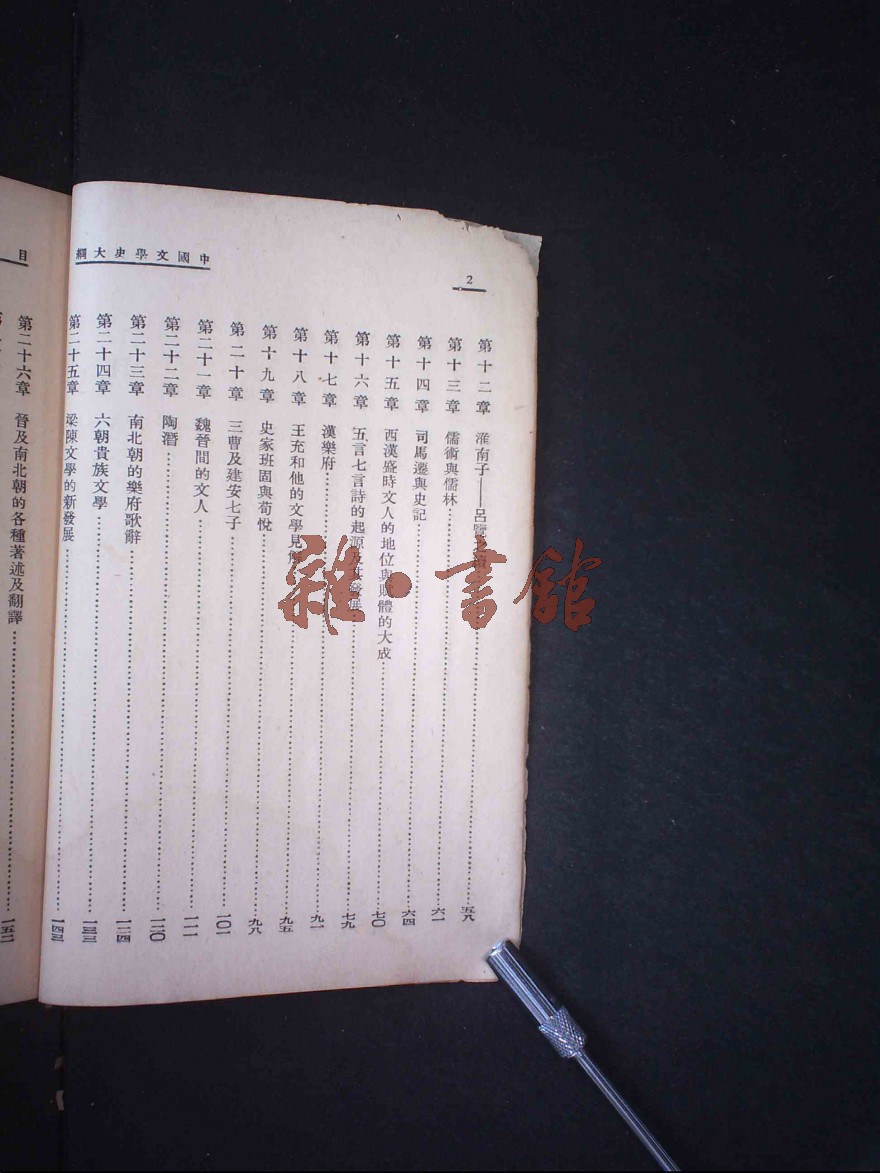 中國文學史大綱
2
第十二章 淮南子——呂覽之
五八
第十三章 儒術與儒林
六一
第十四章 司馬遷與史記
六四
第十五章 西漢盛時文人的地位與賦體的大成
七〇
第十六章 五言七言詩的起源及其發展
七九
第十七章 漢樂府
九一
第十八章 王充和他的文學見
九五
第十九章 史家班固與荀悅
九八
第二十章 三曹及建安七子
一〇一
第二十一章 魏晉間的文人
一一一
第二十二章 陶潛
一二〇
第二十三章 南北朝的樂府歌辭
一二四
第二十四章 六朝貴族文學
一三三
第二十五章 梁陳文學的新發展
一四三
目
第二十六章 晉及南北朝的各種著述及翻譯
一五二
雜·書館